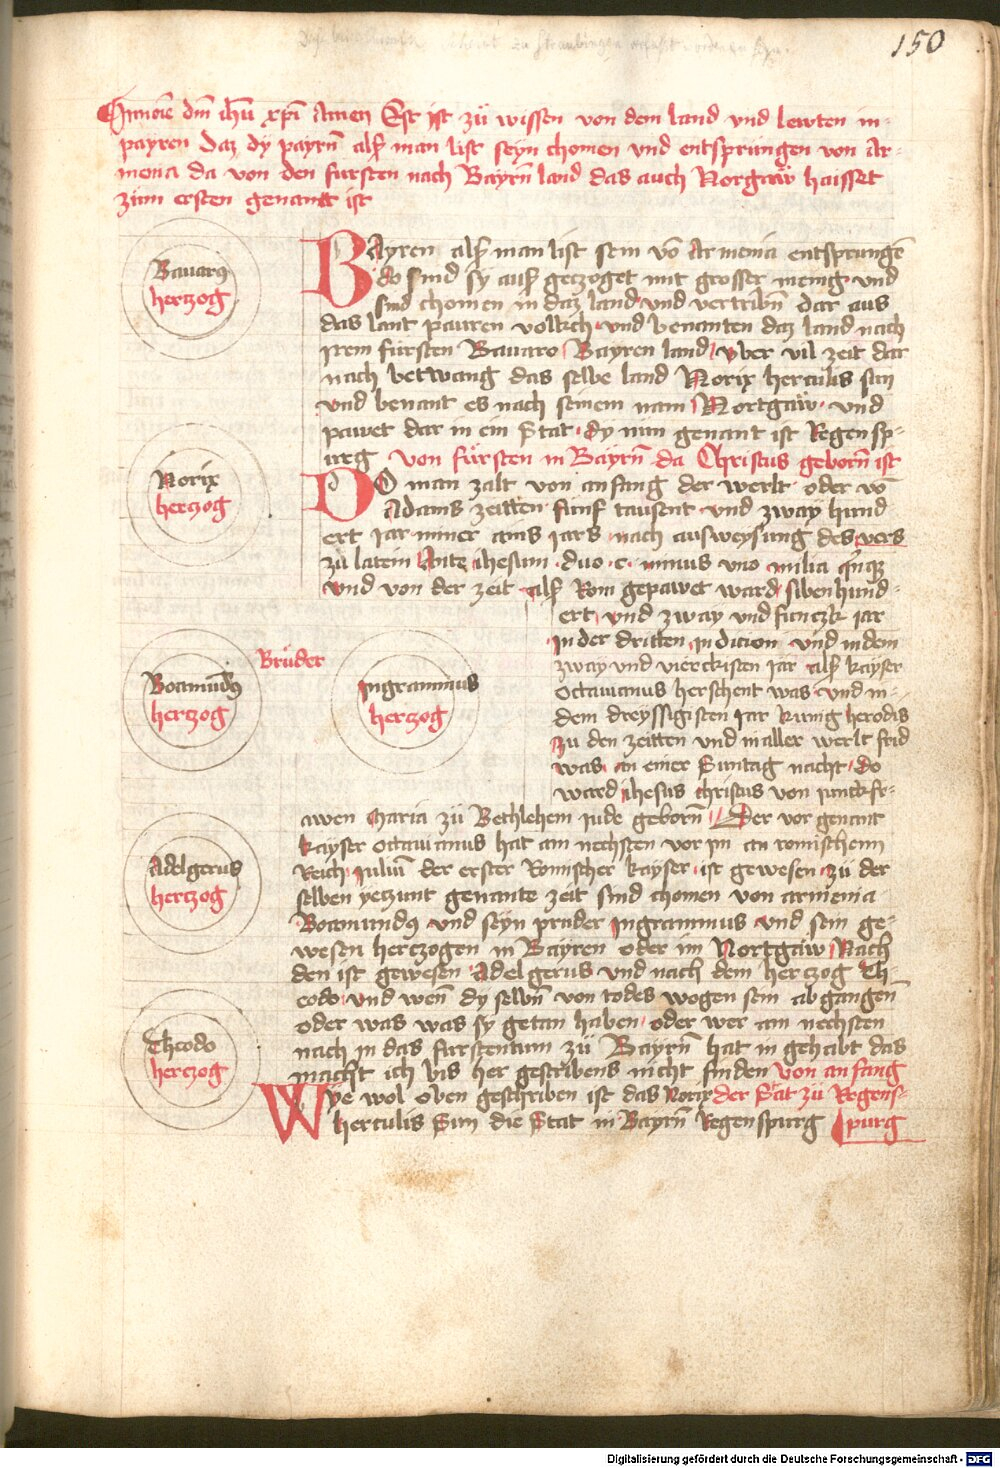 150
In noĩe dm̃ ihũ xp̃i Amen Est ist zü wissen von dem land vnd lewten in
payren Daz dy payrn̄ alß man list seyn chomen vnd entsprungen von Ar-
menia da von den fursten nach Bayrn̄ land das auch Norgaẅ haisset
zum ersten genant ist
Bauarꝯ
hertzog
BAyren alß man list sein võ Armenia entsprungē
do sind sy auß geczoget mit grosser menig vnd
sind chomen in daz land vnd vertribn̄ dar aus
das lant pauren volkch vnd benanten daz land nach
irem fürsten Bauaro Bayren land vber vil zeit dar
nach betwang das selbe land Norix herculis sun
vnd benant es nach seinem nam Nortgaẅ vnd
pawet dar in ein Stat dy nun genant ist Regensp-
urg von fürsten in Bayrn̄ da Christus geborn̄ ist
Norix
herczog
DO man zalt von anfang der werlt oder võ
Adams zeitten funf tausent vnd zway hund
ert Jar miner ains Jars nach ausweysung des vers
zü latein Ante ihesum duo c minus vno milia q̄nqꝫ
vnd von der zeit alß Rom gepawet ward siben hund-
ert vnd zway vnd funczk iar
in der dritten indicion vnd in dem
zway vnd vierckisten iar alß kayser
Octauianus herschent was vnd in
dem dreyssigisten Jar kunig herodis
zu den zeitten vnd in aller werlt frid
was an einer Suntag nacht do
ward ihesus christus von iunckfr-
Brüder
Boamūdꝯ
hertzog
Ingrammus
hertzog
awen Maria zü Bethlehem iude geborn̄ Der vor genant
kayser Octauianus hat am nechsten vor im an romischem
Reich Juliū der erster Romischer kayser ist gewesen zü der
selben yeczunt genante zeit sind chomen von armenia
Boamundꝯ vnd seyn pruder Ingrammus vnd sein ge-
wesen herczogen in Bayren oder im Nortgaẅ Nach
den ist gewesen Adelgerus vnd nach dem herczog Th-
eodo vnd wen̄ dy selbn̄ von todes wogen sein abgangen̄
oder was was sy getan haben oder wer am nechsten
nach in das furstentum zü Bayrn̄ hat in gehabt das
macht ich bis her geschribens nicht finden von anfang
Adelgerus
hertzog
Theodo
herczog
WYe wol oben geschriben ist das Norix der Stat zü Regens-
herculis Sun die Stat in Bayrn̄ Regenspurg purg
Digitalisierung gefördert durch die Deutsche Forschungsgemeinschaft - DFG